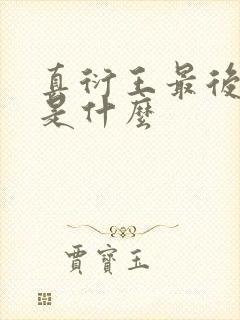 真衍王最後
是什麼
賈寶玉